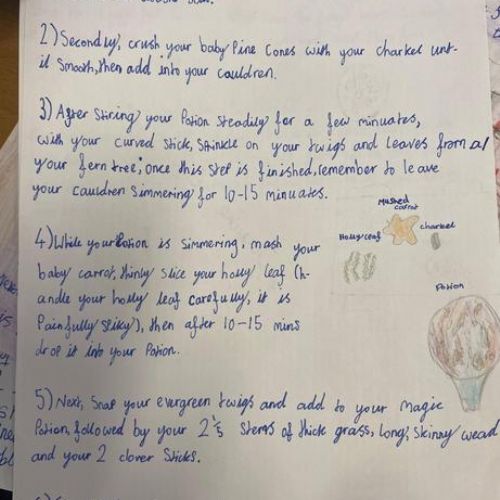 2) Secondly, crush your baby Pine Cones with your charkel unt-
il smooth, then add into your cauldren.
3) After Stiring your Potion Steadily for a few minuates,
with your curved stick, Sprinkle on your twigs and leaves from
your fern tree; once this Step is finished, remember to leave
your cauldren Simmering for 10-15 minuates.
4) While your Potion is simmering, mash your
baby carrot, thinly slice your holly leaf (h-
andle your holly leaf carefully, it is
Painfully Spiky), then after 10-15 mins
drop it into your Potion.
Mushed
carrot
Holly leaf
charkel
Potion
5) Next, Snap your evergreen twigs and add to your Magic
Potion, followed by your 2 Stems of thick grass, long, Skinny wead
and your 2 clover Sticks.